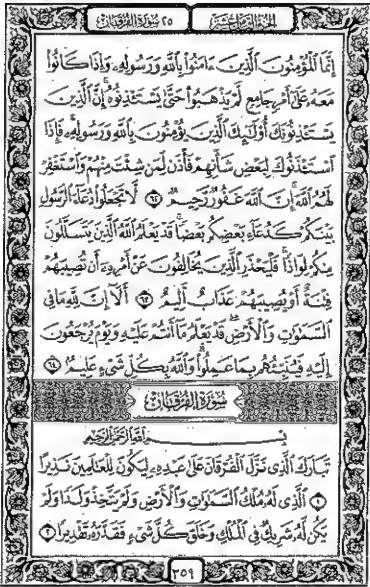 الجزء الثامن عشر ٢٥ سورة الفرقان
إِنَّمَا ٱلْمُؤْمِنُونَ ٱلَّذِينَ ءَامَنُوا۟ بِٱللَّهِ وَرَسُولِهِۦ وَإِذَا كَانُوا۟
مَعَهُۥ عَلَىٰٓ أَمْرٍ جَامِعٍ لَّمْ يَذْهَبُوا۟ حَتَّىٰ يَسْتَـْٔذِنُوهُ إِنَّ ٱلَّذِينَ
يَسْتَـْٔذِنُونَكَ أُو۟لَـٰٓئِكَ ٱلَّذِينَ يُؤْمِنُونَ بِٱللَّهِ وَرَسُولِهِۦ فَإِذَا
ٱسْتَـْٔذَنُوكَ لِبَعْضِ شَأْنِهِمْ فَأْذَن لِّمَن شِئْتَ مِنْهُمْ وَٱسْتَغْفِرْ
لَهُمُ ٱللَّهَ إِنَّ ٱللَّهَ غَفُورٌ رَّحِيمٌ ٦٢ لَّا تَجْعَلُوا۟ دُعَآءَ ٱلرَّسُولِ
بَيْنَكُمْ كَدُعَآءِ بَعْضِكُم بَعْضًا قَدْ يَعْلَمُ ٱللَّهُ ٱلَّذِينَ يَتَسَلَّلُونَ
مِنكُمْ لِوَاذًا فَلْيَحْذَرِ ٱلَّذِينَ يُخَالِفُونَ عَنْ أَمْرِهِۦٓ أَن تُصِيبَهُمْ
فِتْنَةٌ أَوْ يُصِيبَهُمْ عَذَابٌ أَلِيمٌ ٦٣ أَلَآ إِنَّ لِلَّهِ مَا فِى
ٱلسَّمَـٰوَٰتِ وَٱلْأَرْضِ قَدْ يَعْلَمُ مَآ أَنتُمْ عَلَيْهِ وَيَوْمَ يُرْجَعُونَ
إِلَيْهِ فَيُنَبِّئُهُم بِمَا عَمِلُوا۟ وَٱللَّهُ بِكُلِّ شَىْءٍ عَلِيمٌۢ ٦٤
سورة الفرقان
بِسْمِ ٱللَّهِ ٱلرَّحْمَـٰنِ ٱلرَّحِيمِ
تَبَارَكَ ٱلَّذِى نَزَّلَ ٱلْفُرْقَانَ عَلَىٰ عَبْدِهِۦ لِيَكُونَ لِلْعَـٰلَمِينَ نَذِيرًا
١ ٱلَّذِى لَهُۥ مُلْكُ ٱلسَّمَـٰوَٰتِ وَٱلْأَرْضِ وَلَمْ يَتَّخِذْ وَلَدًا وَلَمْ
يَكُن لَّهُۥ شَرِيكٌ فِى ٱلْمُلْكِ وَخَلَقَ كُلَّ شَىْءٍ فَقَدَّرَهُۥ تَقْدِيرًا ٢
٣٥٩